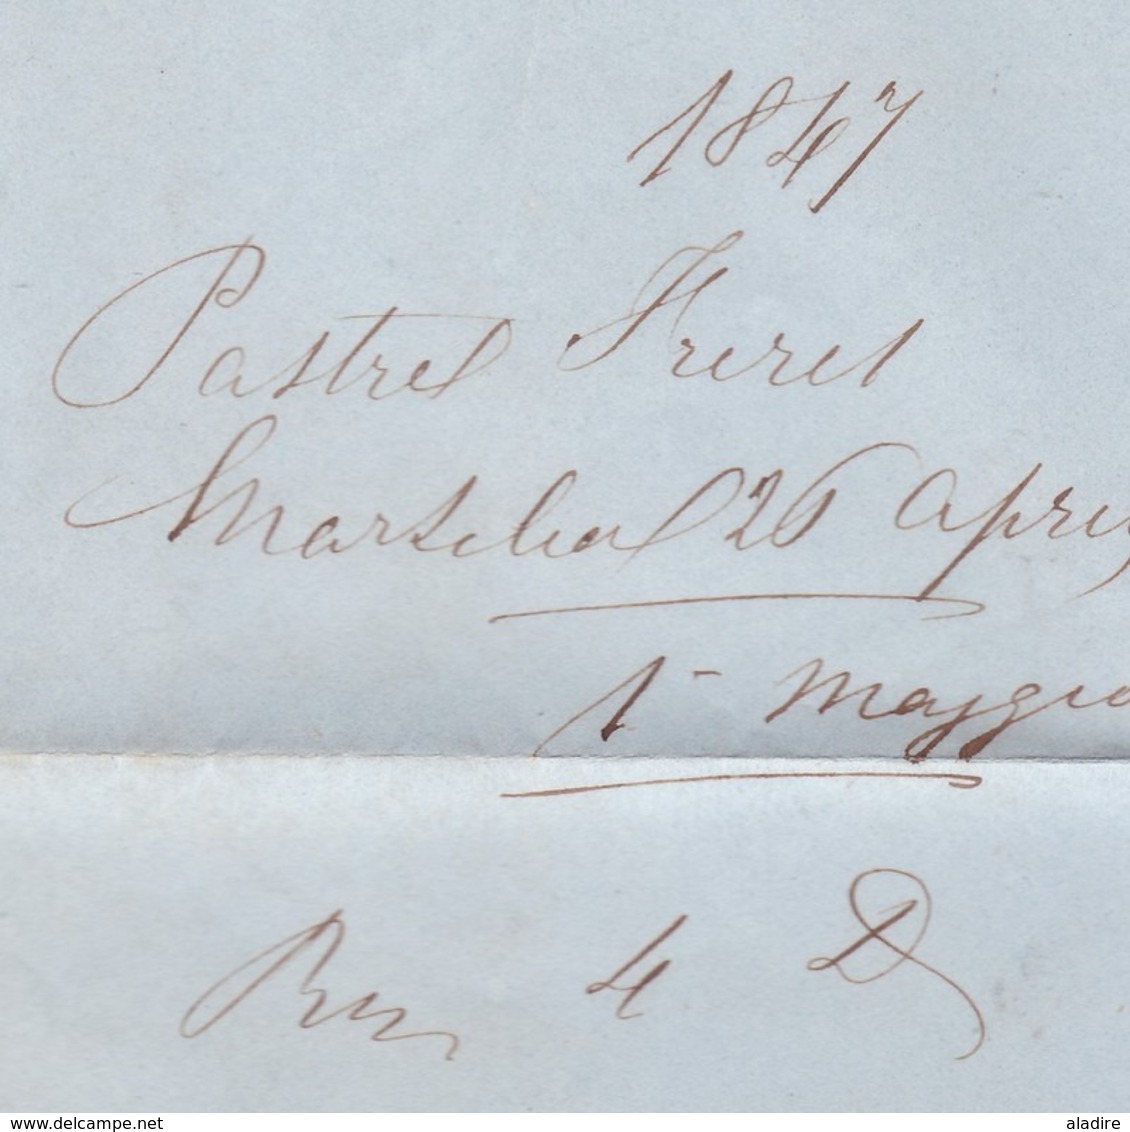 1847
Pastré Freres
Marseilles 26 April
1- Maggio
4 D
www.delcampe.net
aladire